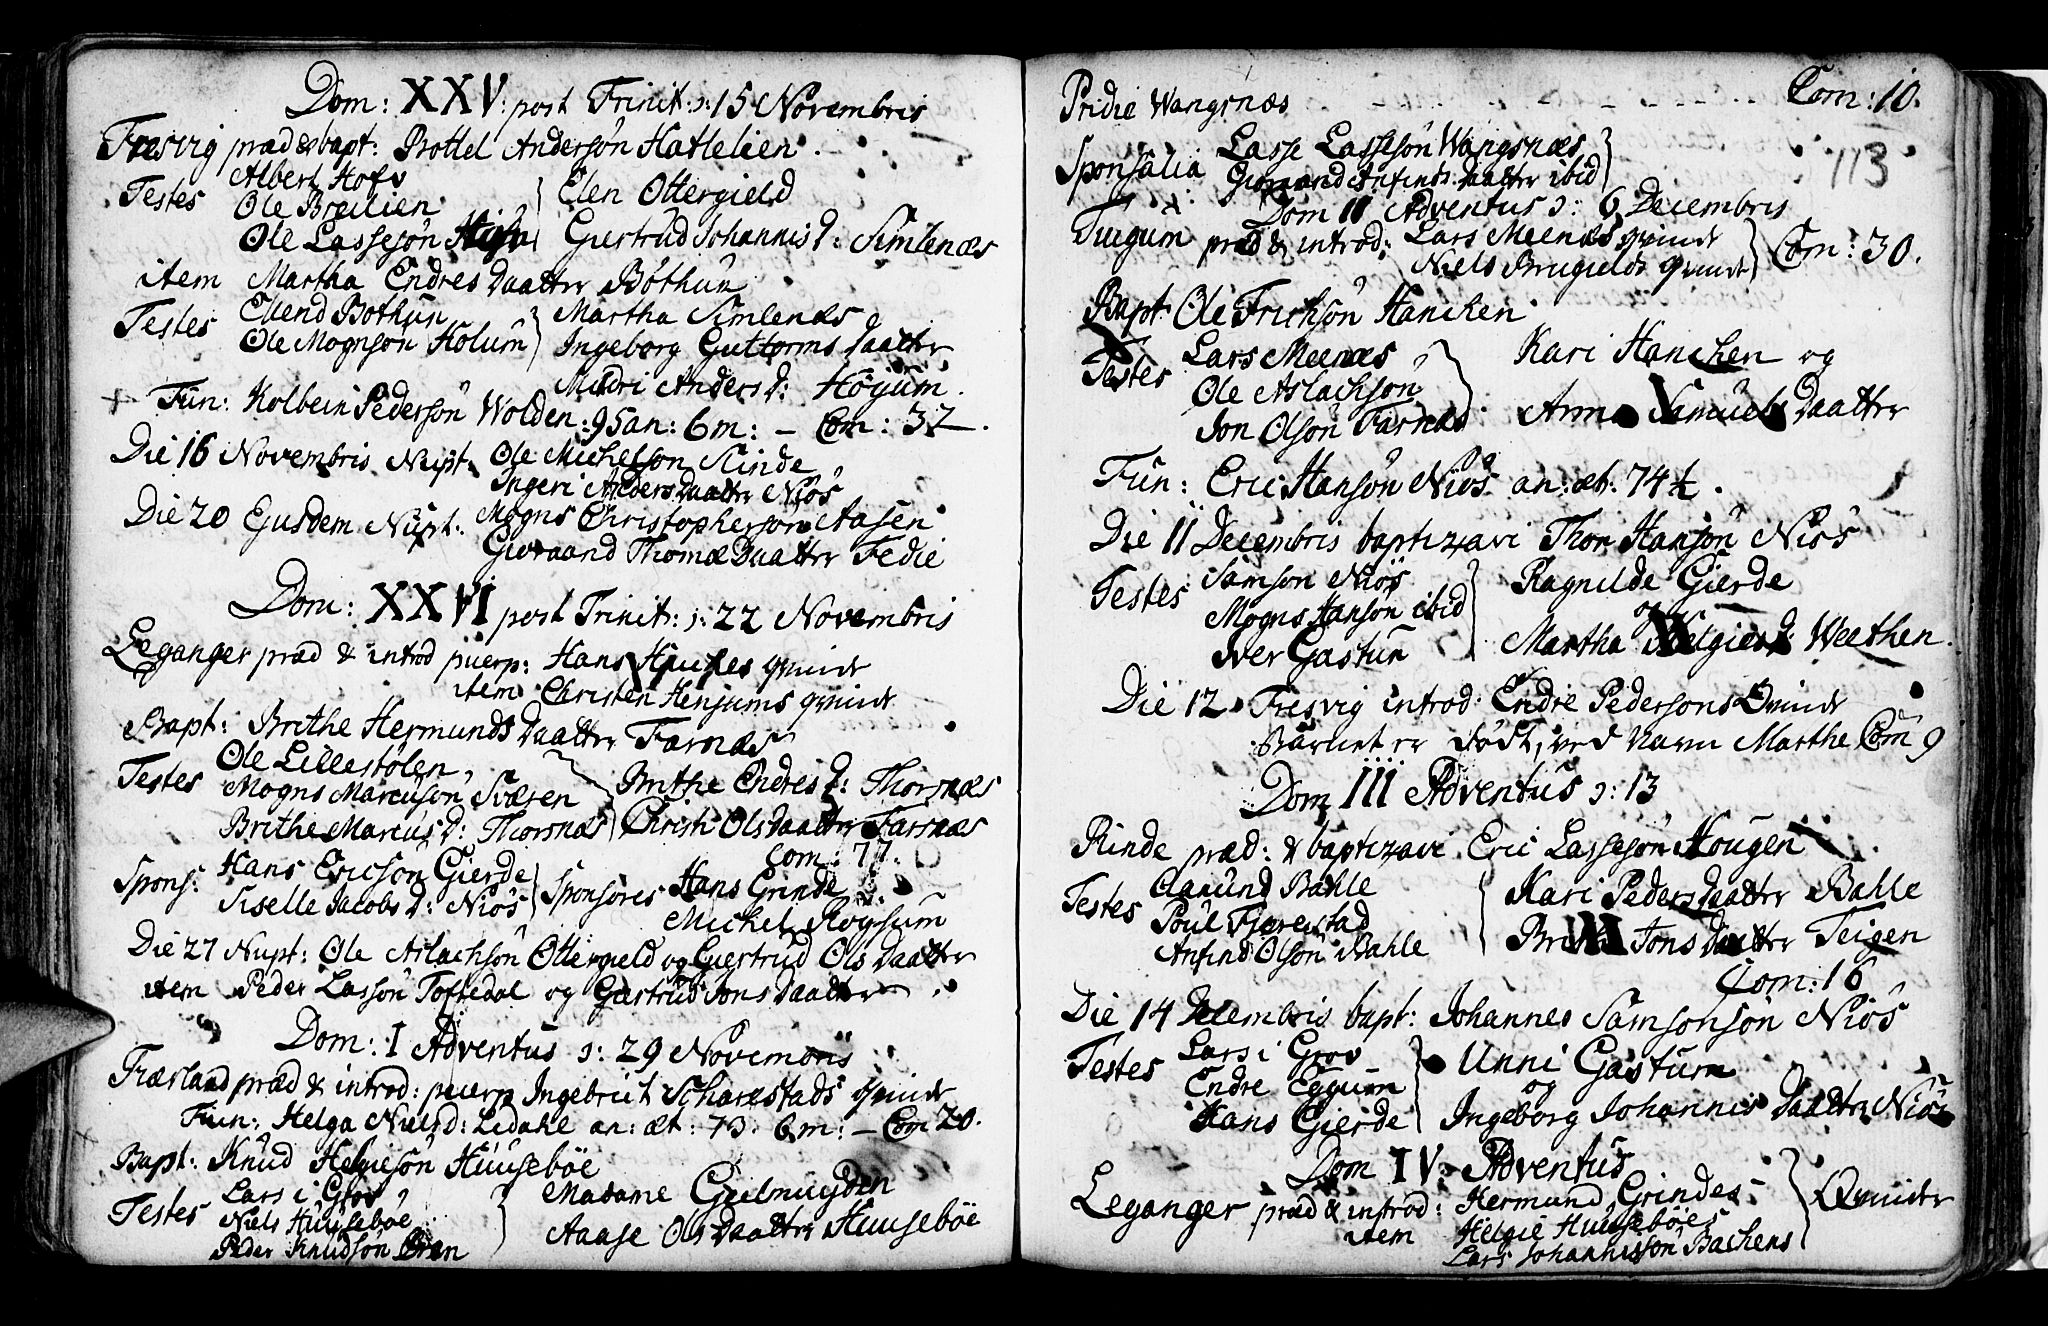 Dom: XXV: post Trinit: ɔ: 15 Novembris
Fresvig præd & bapt: Bottel Andersön Hatlelien.
Testes Albert Hofs
Ole Breilien
Ole Lassesön
Elen Ottergield
Giertrud Johannis d: Simlenæs
item Martha Endres Daatter Böthun
Testes Ellend Bothun
Ole Mognson Holum
Martha Simlenæs
Ingeborg Guttorms Daatter
Anders d: Höyum.
Fun: Kolbein Pedersön Wolden: 95 an: 6 m: – Com: 37.
Die 16 Novembris Nupt: Ole Michelson Slinde
Ingeri Anders Daatter Niös
Die 20 Ejusdem Nupt: Mogns Christopherson Aasen
Giøraand Thomæ Daatter Fedie
Dom: XXVI post Trinit: ɔ: 22 Novembris
Leganger præd & introd puerp: Hans qvinde
item Christen Henjums qvinde
Bapt: Brithe Hermunds Daatter Farnæs
Testes Ole Lillestölen
Mogns Marcuson Sværen
Brithe Marcus d: Thorsnæs
Brithe Endres d: Thorsnæs
Christi Ols daatter Farnæs
Com: 77.
Spons: Hans Ericson Gierde
Siselle Jacobs d: Niös
Sponsores Hans Grinde
Michel Rogsum
Die 27 Nupt: Ole Aslachsön Ottergield og Giertrud Ols Daatter
item Peder Lassön Toftedal og Giertrud Jons daatter
Dom: I Adventus ɔ: 29 Novembris
Færland præd & introd: puerp Ingebrict Scharestads qvinde
Fun: Helga Niels d: Lidahl an: æt: 73. 6 m: – Com 20.
Bapt: Knud Helgieson Huusebøe
Testes Lars i Grov
Niels Huusebøe
Peder Knudsön Gran
Madame Geelmuyden
Aaase Ols Daatter Huusebøe
Pridie Wangsnæs Com: 10.
113
Sponsalia Lasse Lassesön Wangsnæs
Giøraand Anfinds Daatter ibid
Dom II Adventus ɔ: 6 Decembris
Tuigum præd & introd: Lars Meenæs qvinde
Niels Brugields qvinde
Com: 30.
Bapt Ole Erichsön Hanchen
Testes Lars Meenæs
Ole Aslachsön
Jon Olsön Farnæs
Kari Hanchen og
Anna Samuels Daatter
Fun: Eric Hanson Niös an: æt: 74 ½.
Die 11 Decembris baptizavi Thor Hansön Niös
Testes Samson Niös
Mogns Hanson ibid
Iver Gastun
Ragnilde Gierde
og
Martha Helgies d Weethen.
Die 12 Fresvig introd Endre Pedersons Qvinde
Barnet er død født, ved navn Marthe Com 9
Dom III Adventus ɔ: 13
Rinde præd: & baptizavi Eric Lassesön Hougen
Testes Aamund Bahle
Poul Fierestad
Anfind Olsön Bahle
Kari Peders daatter Bahle
Brithe Jons Daatter Teigen
Com: 16
Die 14 Decembris bapt: Johannes Samsonson Niös
Testes Lars i Grov
Endre Eggum
Hans Gierde
Unni Gastum
og
Ingeborg Johannis Daatter Niös
Dom IV Adventus
Leganger præd & introd: Hermund Grindes
item Helgie Huusebøes
Lars Johannisson Bachens
Qvinder